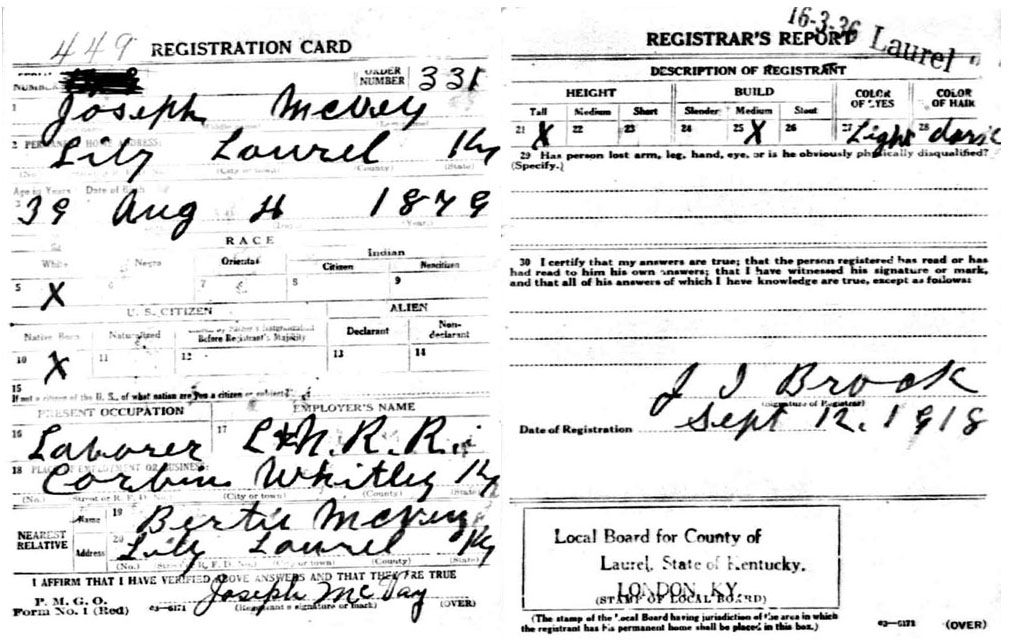 449 REGISTRATION CARD
NUMBER ORDER NUMBER 331
1 Joseph McVey
2 PERMANENT HOME ADDRESS:
Lily Laurel Ky
(No.) (City or town) (County) (State)
Age in Years Date of Birth
39 Aug 4 1879
RACE
White Negro Oriental Indian
Citizen Noncitizen
5 X 7 8 9
U. S. CITIZEN ALIEN
Native Born Naturalized Citizen by Father's Naturalization Before Registrant's Majority Declarant Non-declarant
10 X 11 12 13 14
15
If not a citizen of the U. S., of what nation are you a citizen or subject?
PRESENT OCCUPATION EMPLOYER'S NAME
16 Laborer 17 L&N. R. R.
18 PLACE OF EMPLOYMENT OR BUSINESS:
Corbin Whitley Ky
(No.) Street or R. F. D. No.) (City or town) (County) (State)
NEAREST RELATIVE Name 19 Bertie McVey
Address 20 Lily Laurel Ky
(No.) (Street or R. F. D. No.) (City or town) (County) (State)
I AFFIRM THAT I HAVE VERIFIED ABOVE ANSWERS AND THAT THEY ARE TRUE
P. M. G. O.
Form No. 1 (Red) 03-6171 Joseph McVay
(Registrant's signature or mark) (OVER)
16-3-36 Laurel
REGISTRAR'S REPORT
DESCRIPTION OF REGISTRANT
HEIGHT BUILD COLOR OF EYES COLOR OF HAIR
Tall Medium Short Slender Medium Stout
21 X 22 23 24 25 X 26 27 Light 28 dark
29 Has person lost arm, leg, hand, eye, or is he obviously physically disqualified?
(Specify.)
30 I certify that my answers are true; that the person registered has read or has
had read to him his own answers; that I have witnessed his signature or mark,
and that all of his answers of which I have knowledge are true, except as follows:
J J Brock
(Signature of Registrar)
Date of Registration Sept 12, 1918
Local Board for County of
Laurel, State of Kentucky,
LONDON, KY.
(STAMP OF LOCAL BOARD)
(The stamp of the Local Board having jurisdiction of the area in which
the registrant has his permanent home shall be placed in this box.)
03-6171 (OVER)